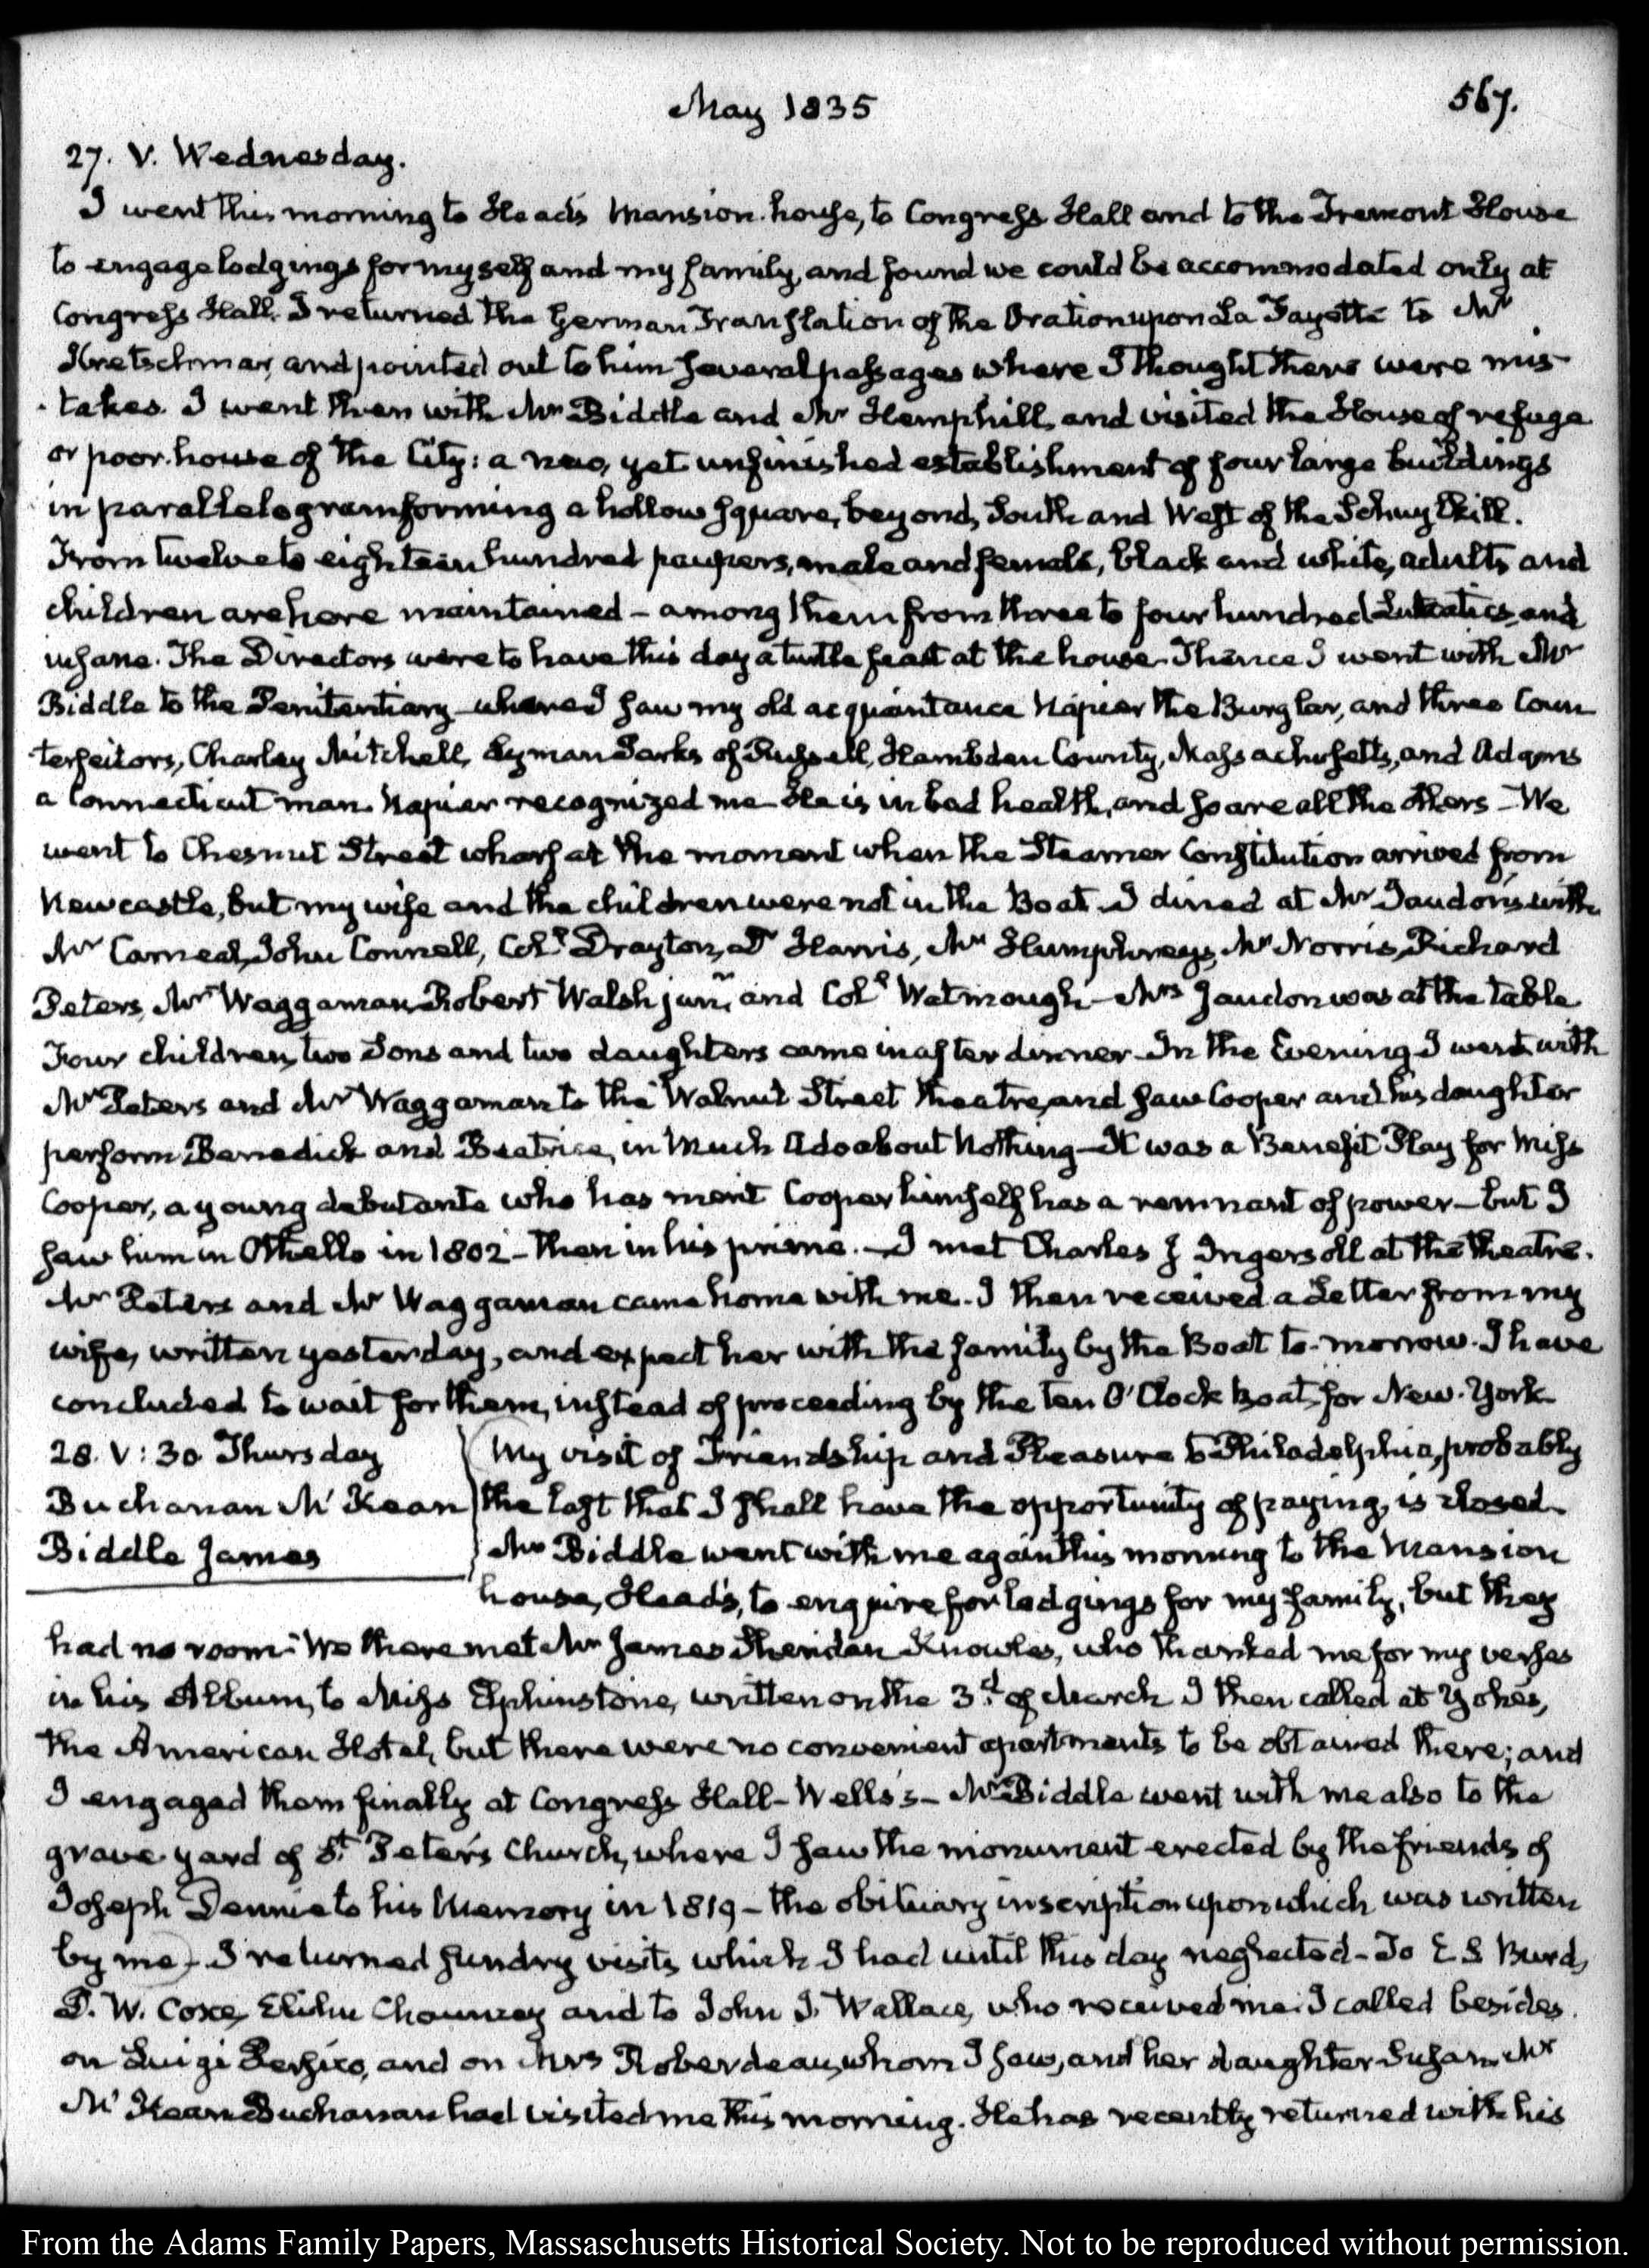 May 1835
567.
27. V. Wednesday.
I went this morning to Head's Mansion-house, to Congress Hall and to the Tremont House
to engage lodgings for myself and my family, and found we could be accommodated only at
Congress Hall. I returned the German Translation of the Oration upon La Fayette to Mr
Kretschmar, and pointed out to him several passages where I thought there were mis
-takes. I went then with Mr Biddle and Mr Hemphill, and visited the House of refuge
or poor-house of the City: a new, yet unfinished establishment of four large buildings
in parallelogram forming a hollow square, beyond, South and West of the Schuylkill.
From twelve to eighteen hundred paupers, male and female, black and white, adults and
children are here maintained - among them from three to four hundred Lunatics and
insane. The Directors were to have this day a turtle feast at the house. Thence I went with Mr
Biddle to the Penitentiary where I saw my old acquaintance Napier the Burglar, and three Coun
-terfeitors, Charley Mitchell, Lyman Parks of Russell, Hambden County, Massachusetts, and Adams
a Connecticut man. Napier recognized me. He is in bad health, and so are all the others - We
went to Chesnut Street wharf at the moment when the Steamer Constitution arrived from
Newcastle, but my wife and the children were not in the Boat. I dined at Mr Jaudon's with
Mr Carneal, John Connell, Coll Drayton, Dr Harris, Mr Humphreys, Mr Norris, Richard
Peters, Mr Waggaman, Robert Walsh junr. and Coll Watmough - Mrs Jaudon was at the table
Four children, two Sons and two daughters came in after dinner. In the Evening I went with
Mr Peters and Mr Waggaman to the Walnut Street theatre, and saw Cooper and his daughter
perform Benedick and Beatrice, in Much Ado about Nothing - It was a Benefit Play for Miss
Cooper, a young debutante who has merit. Cooper himself has a remnant of power - but I
saw him in Othello in 1802 - then in his prime. - I met Charles J Ingersoll at the theatre.
Mr Peters and Mr Waggaman came home with me. I then received a Letter from my
wife, written yesterday, and expect her with the family by the Boat to-morrow. I have
concluded to wait for them, instead of proceeding by the ten O'Clock Boat, for New-York
28. V: 30 Thursday
Buchanan McKean
Biddle James
My visit of Friendship and Pleasure to Philadelphia, probably
the last that I shall have the opportunity of paying, is closed.
Mr Biddle went with me again this morning to the Mansion
house, Head's, to enquire for lodgings for my family, but they
had no room - We there met Mr James Sheridan Knowles, who thanked me for my verses
in his Album, to Miss Elphinstone, written on the 3d. of March. I then called at Yohe's,
the American Hotel, but there were no convenient apartments to be obtained there; and
I engaged them finally at Congress Hall - Wells's - Mr Biddle went with me also to the
grave-yard of St. Peter's Church, where I saw the monument erected by the friends of
Joseph Dennie to his Memory in 1819 - the obituary inscription upon which was written
by me - I returned sundry visits which I had until this day neglected - To E S Burd,
T. W. Coxe, Elihu Chauncey and to John J. Wallace, who received me. I called besides
on Luigi Persico, and on Mrs Roberdeau, whom I saw, and her daughter Susan. Mr
McKean Buchanan had visited me this morning. He has recently returned with his
From the Adams Family Papers, Massachusetts Historical Society. Not to be reproduced without permission.